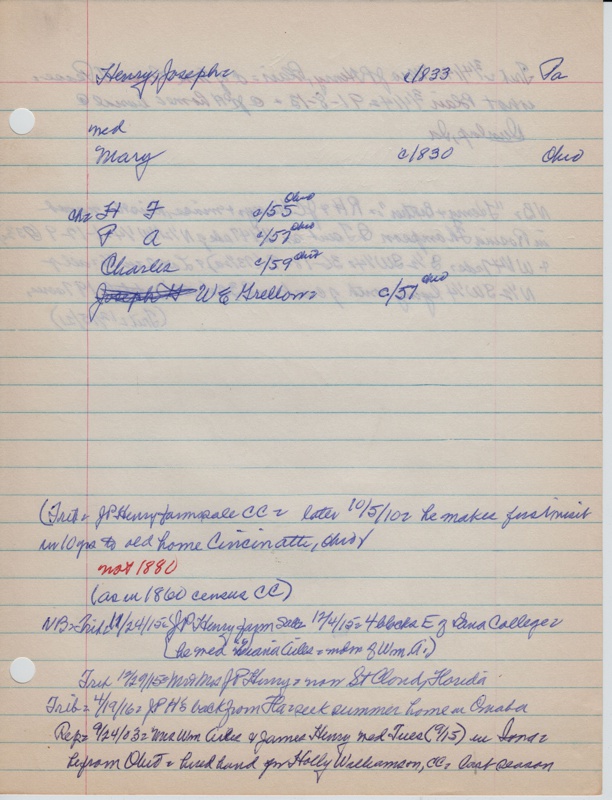 Henry, Joseph= c/1833 Pa
med
Mary c/1830 Ohio
ch= H F c/55 Ohio
P A c/57 Ohio
Charles c/59 Ohio
Joseph H W E Grellow= c/51 Ohio
(Trib= JP Henry farm sale CC= later 10/5/10= he makes first visit
in 10 yrs to old home Cincinatti, Ohio
not 1880
(as in 1860 census CC)
NB= Trib 11/24/15= J.P. Henry farm sale 12/4/15= 4 blocks E of Dana College=
(he med Ailes= mdm of Wm A.)
Trib 12/29/15= Mr & Mrs J P Henry= now St Cloud, Florida
Trib= 4/19/16= JP H's back from Fla seek summer home in Omaha
Rep= 9/24/03= Mrs Wm Ailes & James Henry med Tues (9/15) in
he from Ohio= hired hand for Holly Williamson, CC= last season